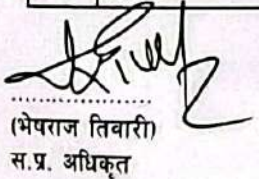 ....................
(भेषराज तिवारी)
स.प्र. अधिकृत